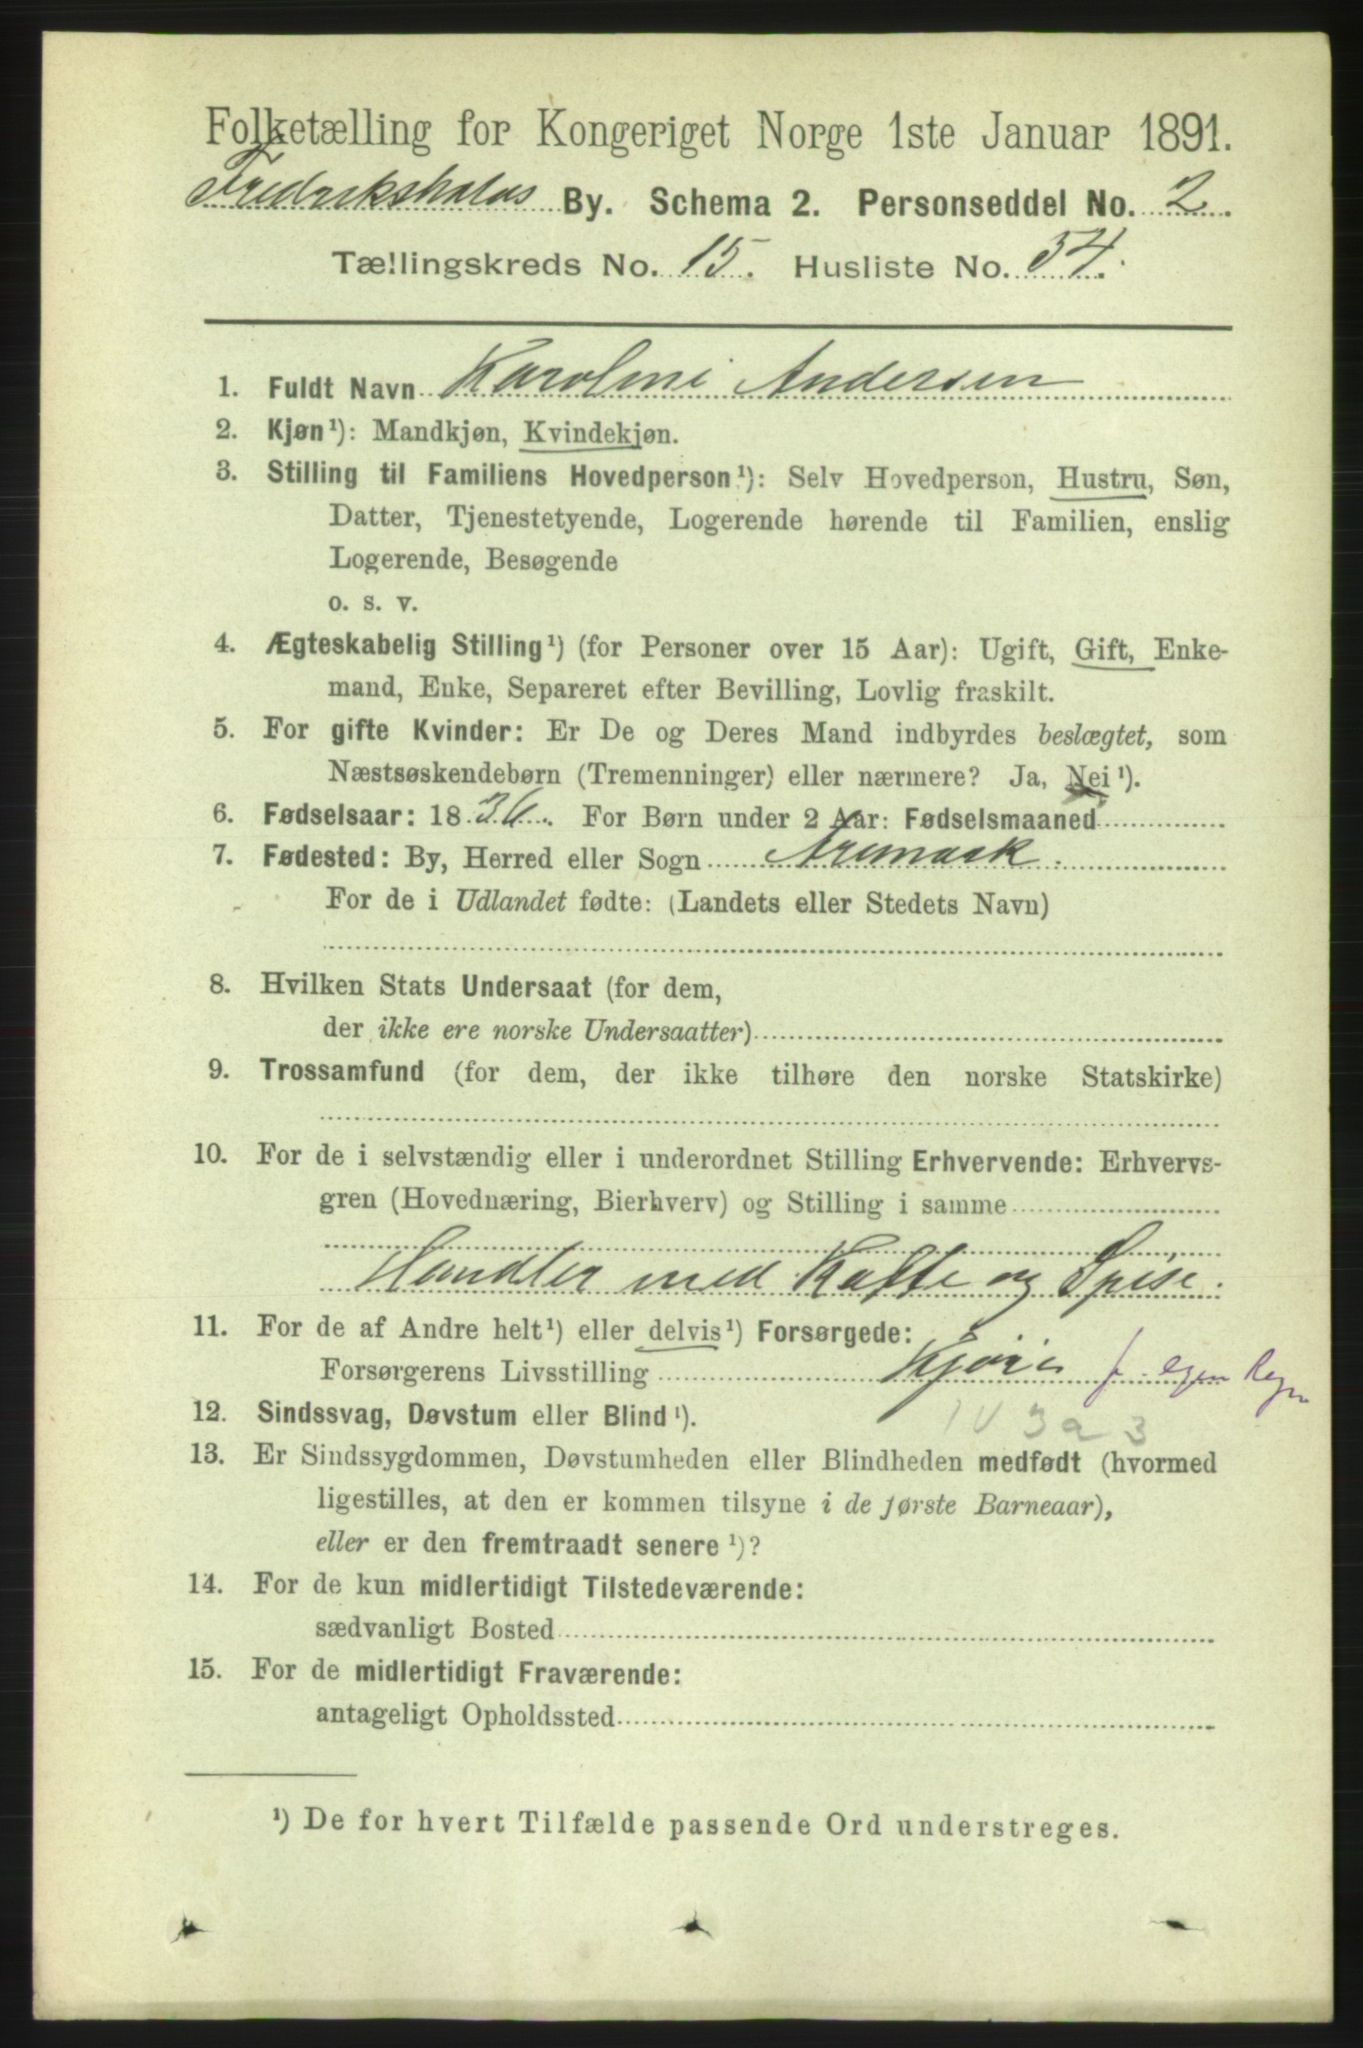 Folketælling for Kongeriget Norge 1ste Januar 1891.
Fredrikshalds By. Schema 2. Personseddel No. 2.
Tællingskreds No. 15. Husliste No. 54.
1. Fuldt Navn Karoline Andersen
2. Kjøn¹): Mandkjøn, Kvindekjøn.
3. Stilling til Familiens Hovedperson¹): Selv Hovedperson, Hustru, Søn,
Datter, Tjenestetyende, Logerende hørende til Familien, enslig
Logerende, Besøgende
o. s. v.
4. Ægteskabelig Stilling¹) (for Personer over 15 Aar): Ugift, Gift, Enke-
mand, Enke, Separeret efter Bevilling, Lovlig fraskilt.
5. For gifte Kvinder: Er De og Deres Mand indbyrdes beslægtet, som
Næstsøskendebørn (Tremenninger) eller nærmere? Ja, Nei¹).
6. Fødselsaar: 1836. For Børn under 2 Aar: Fødselsmaaned
7. Fødested: By, Herred eller Sogn Aremark.
For de i Udlandet fødte: (Landets eller Stedets Navn)
8. Hvilken Stats Undersaat (for dem,
der ikke ere norske Undersaatter)
9. Trossamfund (for dem, der ikke tilhøre den norske Statskirke)
10. For de i selvstændig eller i underordnet Stilling Erhvervende: Erhvervs-
gren (Hovednæring, Bierhverv) og Stilling i samme
Handler med Kaffe og Spise.
11. For de af Andre helt¹) eller delvis¹) Forsørgede:
Forsørgerens Livsstilling Kjører f. egen Regn
12. Sindssvag, Døvstum eller Blind¹).
13. Er Sindssygdommen, Døvstumheden eller Blindheden medfødt (hvormed
ligestilles, at den er kommen tilsyne i de første Barneaar),
eller er den fremtraadt senere¹)?
14. For de kun midlertidigt Tilstedeværende:
sædvanligt Bosted
15. For de midlertidigt Fraværende:
antageligt Opholdssted
¹) De for hvert Tilfælde passende Ord understreges.